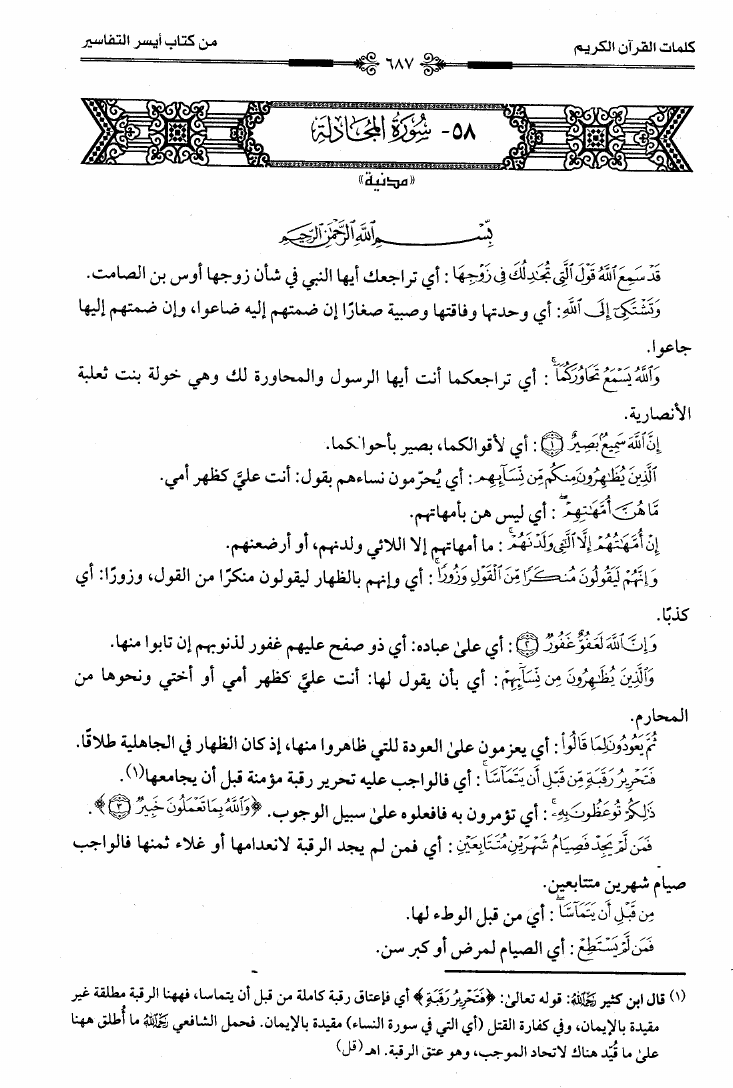 كلمات القرآن الكريم
من كتاب أيسر التفاسير
٦٨٧
٥٨- سُورَةُ المُجَادلَة
«مدنية»
بِسْمِ اللَّهِ الرَّحْمَٰنِ الرَّحِيمِ
قَدْ سَمِعَ ٱللَّهُ قَوْلَ ٱلَّتِى تُجَٰدِلُكَ فِى زَوْجِهَا: أي تراجعك أيها النبي في شأن زوجها أوس بن الصامت.
وَتَشْتَكِىٓ إِلَى ٱللَّهِ: أي وحدتها وفاقتها وصبية صغارًا إن ضمتهم إليه ضاعوا، وإن ضمتهم إليها
جاعوا.
وَٱللَّهُ يَسْمَعُ تَحَاوُرَكُمَآ ۚ: أي تراجعكما أنت أيها الرسول والمحاورة لك وهي خولة بنت ثعلبة
الأنصارية.
إِنَّ ٱللَّهَ سَمِيعٌۢ بَصِيرٌ ١: أي لأقوالكما، بصير بأحوالكما.
ٱلَّذِينَ يُظَٰهِرُونَ مِنكُم مِّن نِّسَآئِهِم: أي يُحرّمون نساءهم بقول: أنت عليَّ كظهر أمي.
مَّا هُنَّ أُمَّهَٰتِهِمْ ۖ: أي ليس هن بأمهاتهم.
إِنْ أُمَّهَٰتُهُمْ إِلَّا ٱلَّٰٓـِٔى وَلَدْنَهُمْ ۚ: ما أمهاتهم إلا اللائي ولدنهم، أو أرضعنهم.
وَإِنَّهُمْ لَيَقُولُونَ مُنكَرًا مِّنَ ٱلْقَوْلِ وَزُورًا ۚ: أي وإنهم بالظهار ليقولون منكرًا من القول، وزورًا: أي
كذبًا.
وَإِنَّ ٱللَّهَ لَعَفُوٌّ غَفُورٌ ٢: أي علىٰ عباده: أي ذو صفح عليهم غفور لذنوبهم إن تابوا منها.
وَٱلَّذِينَ يُظَٰهِرُونَ مِن نِّسَآئِهِمْ: أي بأن يقول لها: أنت عليَّ كظهر أمي أو أختي ونحوها من
المحارم.
ثُمَّ يَعُودُونَ لِمَا قَالُوا۟: أي يعزمون علىٰ العودة للتي ظاهروا منها، إذ كان الظهار في الجاهلية طلاقًا.
فَتَحْرِيرُ رَقَبَةٍ مِّن قَبْلِ أَن يَتَمَآسَّا ۚ: أي فالواجب عليه تحرير رقبة مؤمنة قبل أن يجامعها(١).
ذَٰلِكُمْ تُوعَظُونَ بِهِۦ ۚ: أي تؤمرون به فافعلوه علىٰ سبيل الوجوب. ﴿وَٱللَّهُ بِمَا تَعْمَلُونَ خَبِيرٌ ٣﴾.
فَمَن لَّمْ يَجِدْ فَصِيَامُ شَهْرَيْنِ مُتَتَابِعَيْنِ: أي فمن لم يجد الرقبة لانعدامها أو غلاء ثمنها فالواجب
صيام شهرين متتابعين.
مِن قَبْلِ أَن يَتَمَآسَّا ۖ: أي من قبل الوطء لها.
فَمَن لَّمْ يَسْتَطِعْ: أي الصيام لمرض أو كبر سن.
(١) قال ابن كثير رحمه الله: قوله تعالىٰ: ﴿فَتَحْرِيرُ رَقَبَةٍ﴾ أي فإعتاق رقبة كاملة من قبل أن يتماسا، فههنا الرقبة مطلقة غير
مقيدة بالإيمان، وفي كفارة القتل (أي التي في سورة النساء) مقيدة بالإيمان. فحمل الشافعي رحمه الله ما أُطلق ههنا
علىٰ ما قُيِّد هناك لاتحاد الموجب، وهو عتق الرقبة. اهـ (قل)